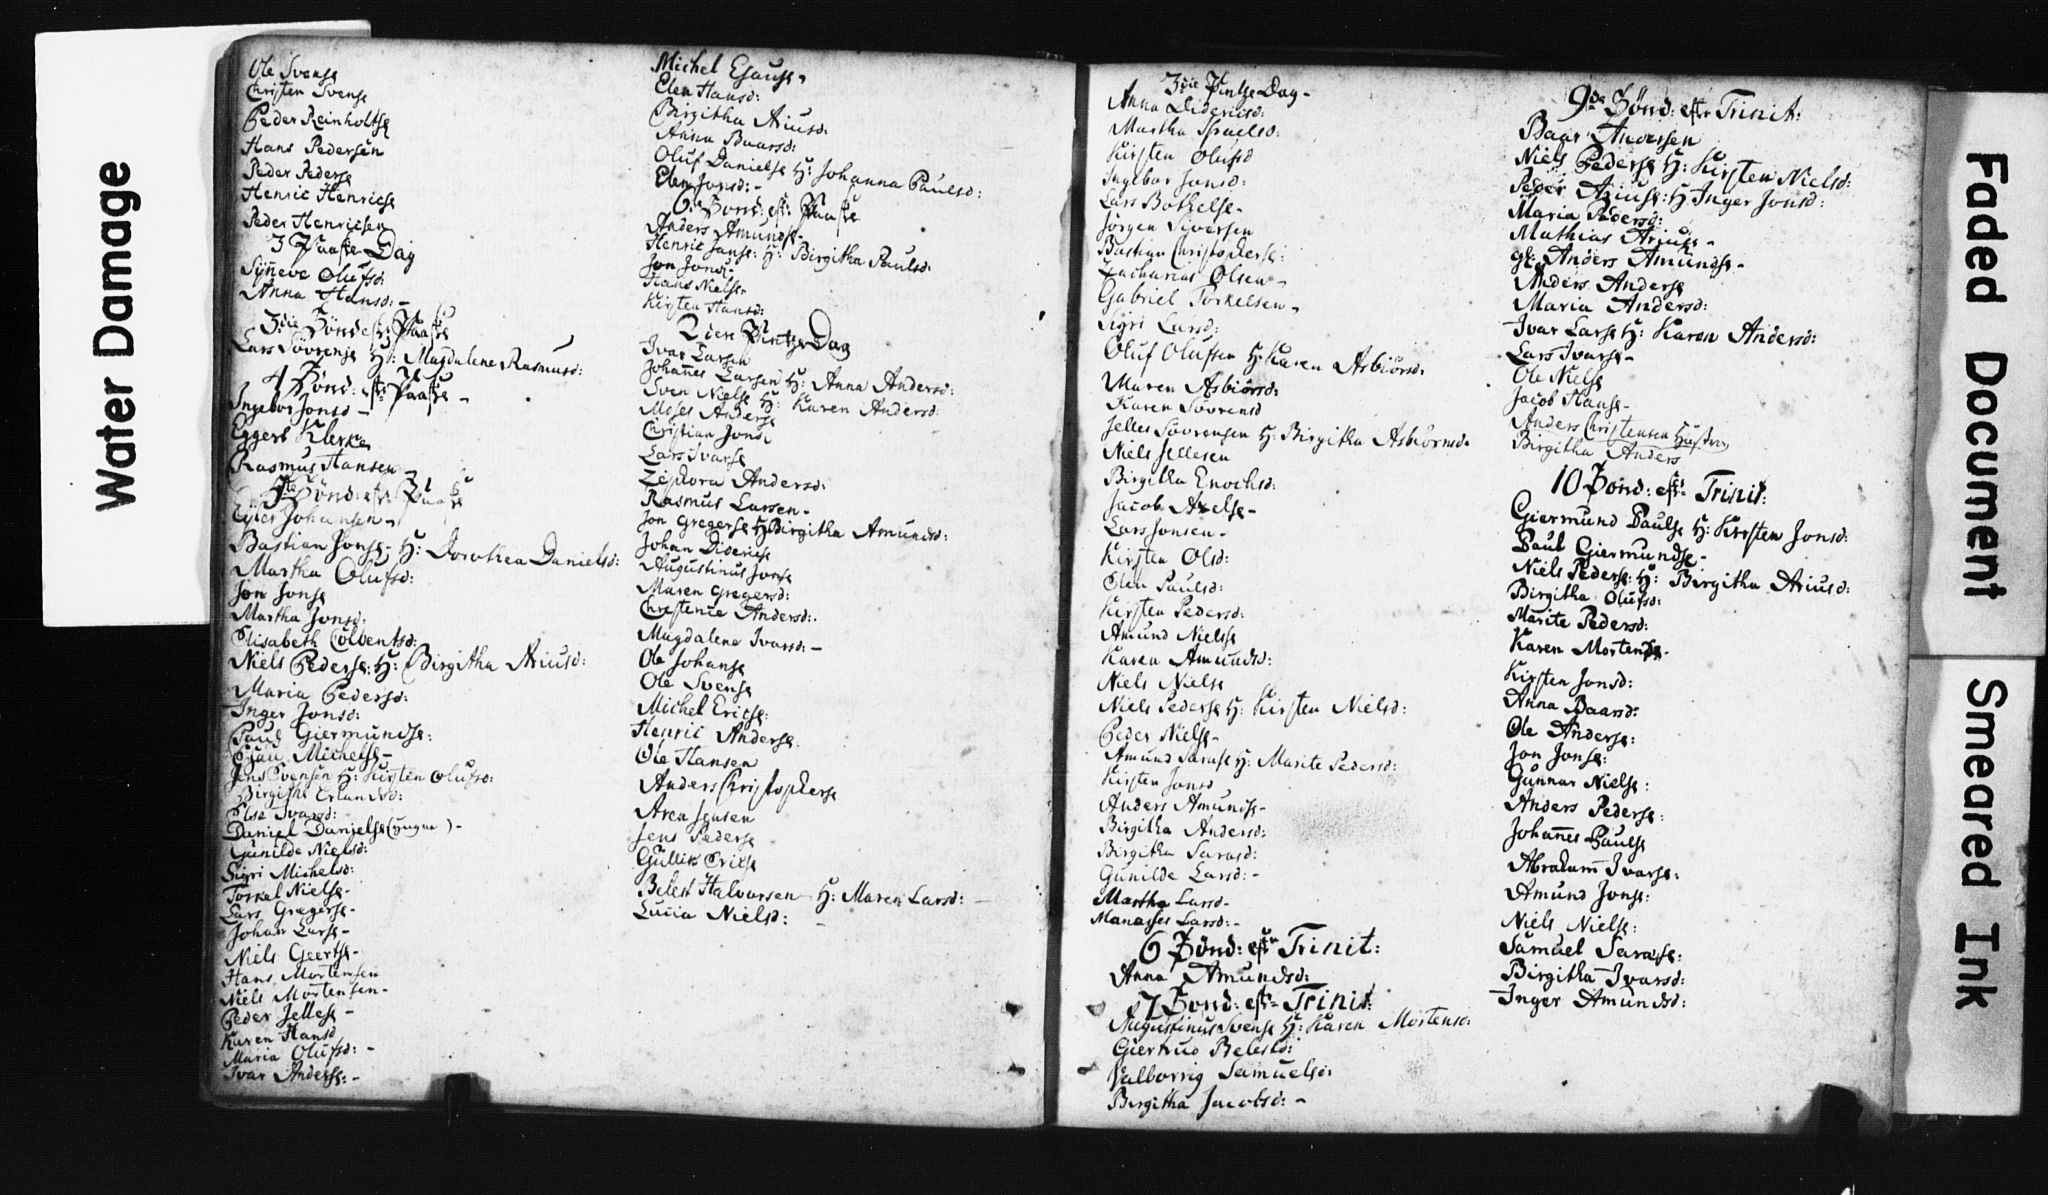 Water Damage
Ole Svense
Christen Svense
Peder Reinholtse
Hans Pedersen
Peder Pederse
Henric Henricse
Peder Henricsen
3 Paaske Dag
Synneve Olufsd:
Anna Hansd: -
3die Sönd: eft: Paaske
Lars Sövrense H: Magdalene Rasmusd:
4 Sönd: eft: Paaske -
Ingebor Jonsd -
Eggert Klerke
Rasmus Hansen
5te Sönd: eft: Paaske
Ejler Johansen -
Bastian Jonse - H: Dorothea Danielsd:
Martha Olufsd:
Jon Jonse
Martha Jonsd:
Elisabeth
Niels Pederse: H: Birgitha Ariusd:
Maria Pedersd:
Inger Jonsd:
Paul Giermundse:
Esau Michelse -
Jens Svensen H: Kirsten Olufsd:
Birgithe Erlandsd:
Else Ivarsd:
Daniel Danielse (yngre) -
Gunilde Nielsd:
Sigri Michelsd:
Torkel Nielse -
Lars Gregerse -
Johan Larse -
Niels Geertse -
Hans Mortensen
Niels Mortensen -
Peder Jellese -
Karen Hansd
Maria Olufsd: -
Ivar Anderse: -
Michel Esause -
Elen Hansd:
Birgitha Ariusd:
Anna Baarsd:
Oluf Danielse H: Johanna Paulsd:
Elen Jonsd: -
6te Sönd: eft: Paaske
Anders Amundse -
Henric Janse: H: Birgitha Paulsd:
Jon Jonse -
Hans Nielse -
Kirsten Hansd:
2den Pintze Dag
Ivar Larsen
Johannes Larsen H: Anna Andersd:
Sven Nielse H: Karen Andersd:
Moses Anderse
Christian Jonse
Lars Ivarse
Zephora Andersd:
Rasmus Larsen -
Jon Gregerse H: Birgitha Amundsd:
Johan Didericse
Augustinus Jonse
Maren Gregersd:
Chrestence Andersd:
Magdalene Ivarsd: -
Ole Johanse
Ole Svense
Michel Ericse:
Henric Anderse
Ole Hansen
Anders Christopherse
Aren Jensen
Jens Pederse
Gullik Ericse
Belest Halvorsen H: Maren Larsd:
Lucia Nielsd:
3die Pintze Dag -
Anna Didericsd:
Martha Israelsd:
Kirsten Olufsd
Ingebor Jonsd:
Lars Bothelse -
Jörgen Siversen
Bastian Christopherse:
Zacharias Olsen -
Gabriel Torkelsen -
Sigri Larsd:
Oluf Olufsen H: Karen Asbiörsd:
Maren Asbiörsd:
Karen Sövrensd
Jelles Sövrensen H: Birgitha Asbiörnsd:
Niels Jellesen
Birgitha Enochsd:
Jacob Axelse -
Lars Jonsen -
Kirsten Olsd:
Elen Paulsd:
Kirsten Pedersd:
Amund Nielse
Karen Amundsd:
Niels Nielse
Niels Pederse H: Kirsten Nielsd:
Peder Nielse -
Amund Sarase H: Marite Pedersd:
Kirsten Jonsd
Anders Amundse -
Birgitha Andersd:
Birgitha Sarasd:
Gunilde Larsd: -
Martha Larsd -
Manasses Larsd: -
6 Sönd: eftr Trinit:
Anna Amundsd:
7 Sönd: eft: Trinit:
Augustinus Svense H: Karen Mortensd:
Giertrud Belestd:
Valborrig Samuelsd:
Birgitha Jacobsd: -
9de Sönd: eftr Trinit:
Baar Andersen
Niels Pederse H: Kirsten Nielsd:
Peder Ariuse: H: Inger Jonsd:
Maria Pedersd:
Mathias Ariuse -
gl: Anders Amundse -
Anders Anderse
Maria Andersd:
Ivar Larse H: Karen Andersd:
Lars Ivarse -
Ole Nielse
Jacob Hanse -
Anders Christensen Hustru
Birgitha Anders
10 Sönd: eft: Trinit:
Giermund Paulse H: Kirsten Jonsd:
Paul Giermundse -
Niels Pederse: H: Birgitha Ariusd:
Birgitha Olufsd:
Marite Pedersd:
Karen Mortensd -
Kirsten Jonsd:
Anna Baarsd:
Ole Anderse:
Jon Jonse:
Gunnar Nielse:
Anders Pederse:
Johannes Paulse
Abraham Ivarse:
Amund Jonse:
Niels Nielse:
Samuel Sarase:
Birgitha Ivarsd:
Inger Amundsd:
Faded Document
Smeared Ink